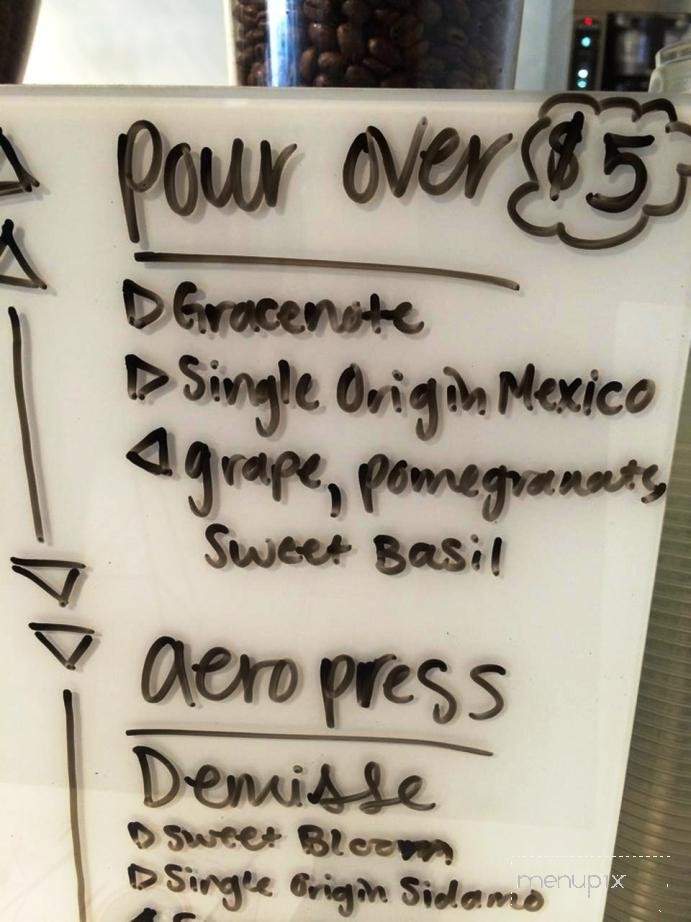 Pour over $5
Gracenote
Single Origin Mexico
grape, pomegranate,
Sweet Basil
aero press
Demisse
Sweet Bloom
Single Origin Sidamo
menupix